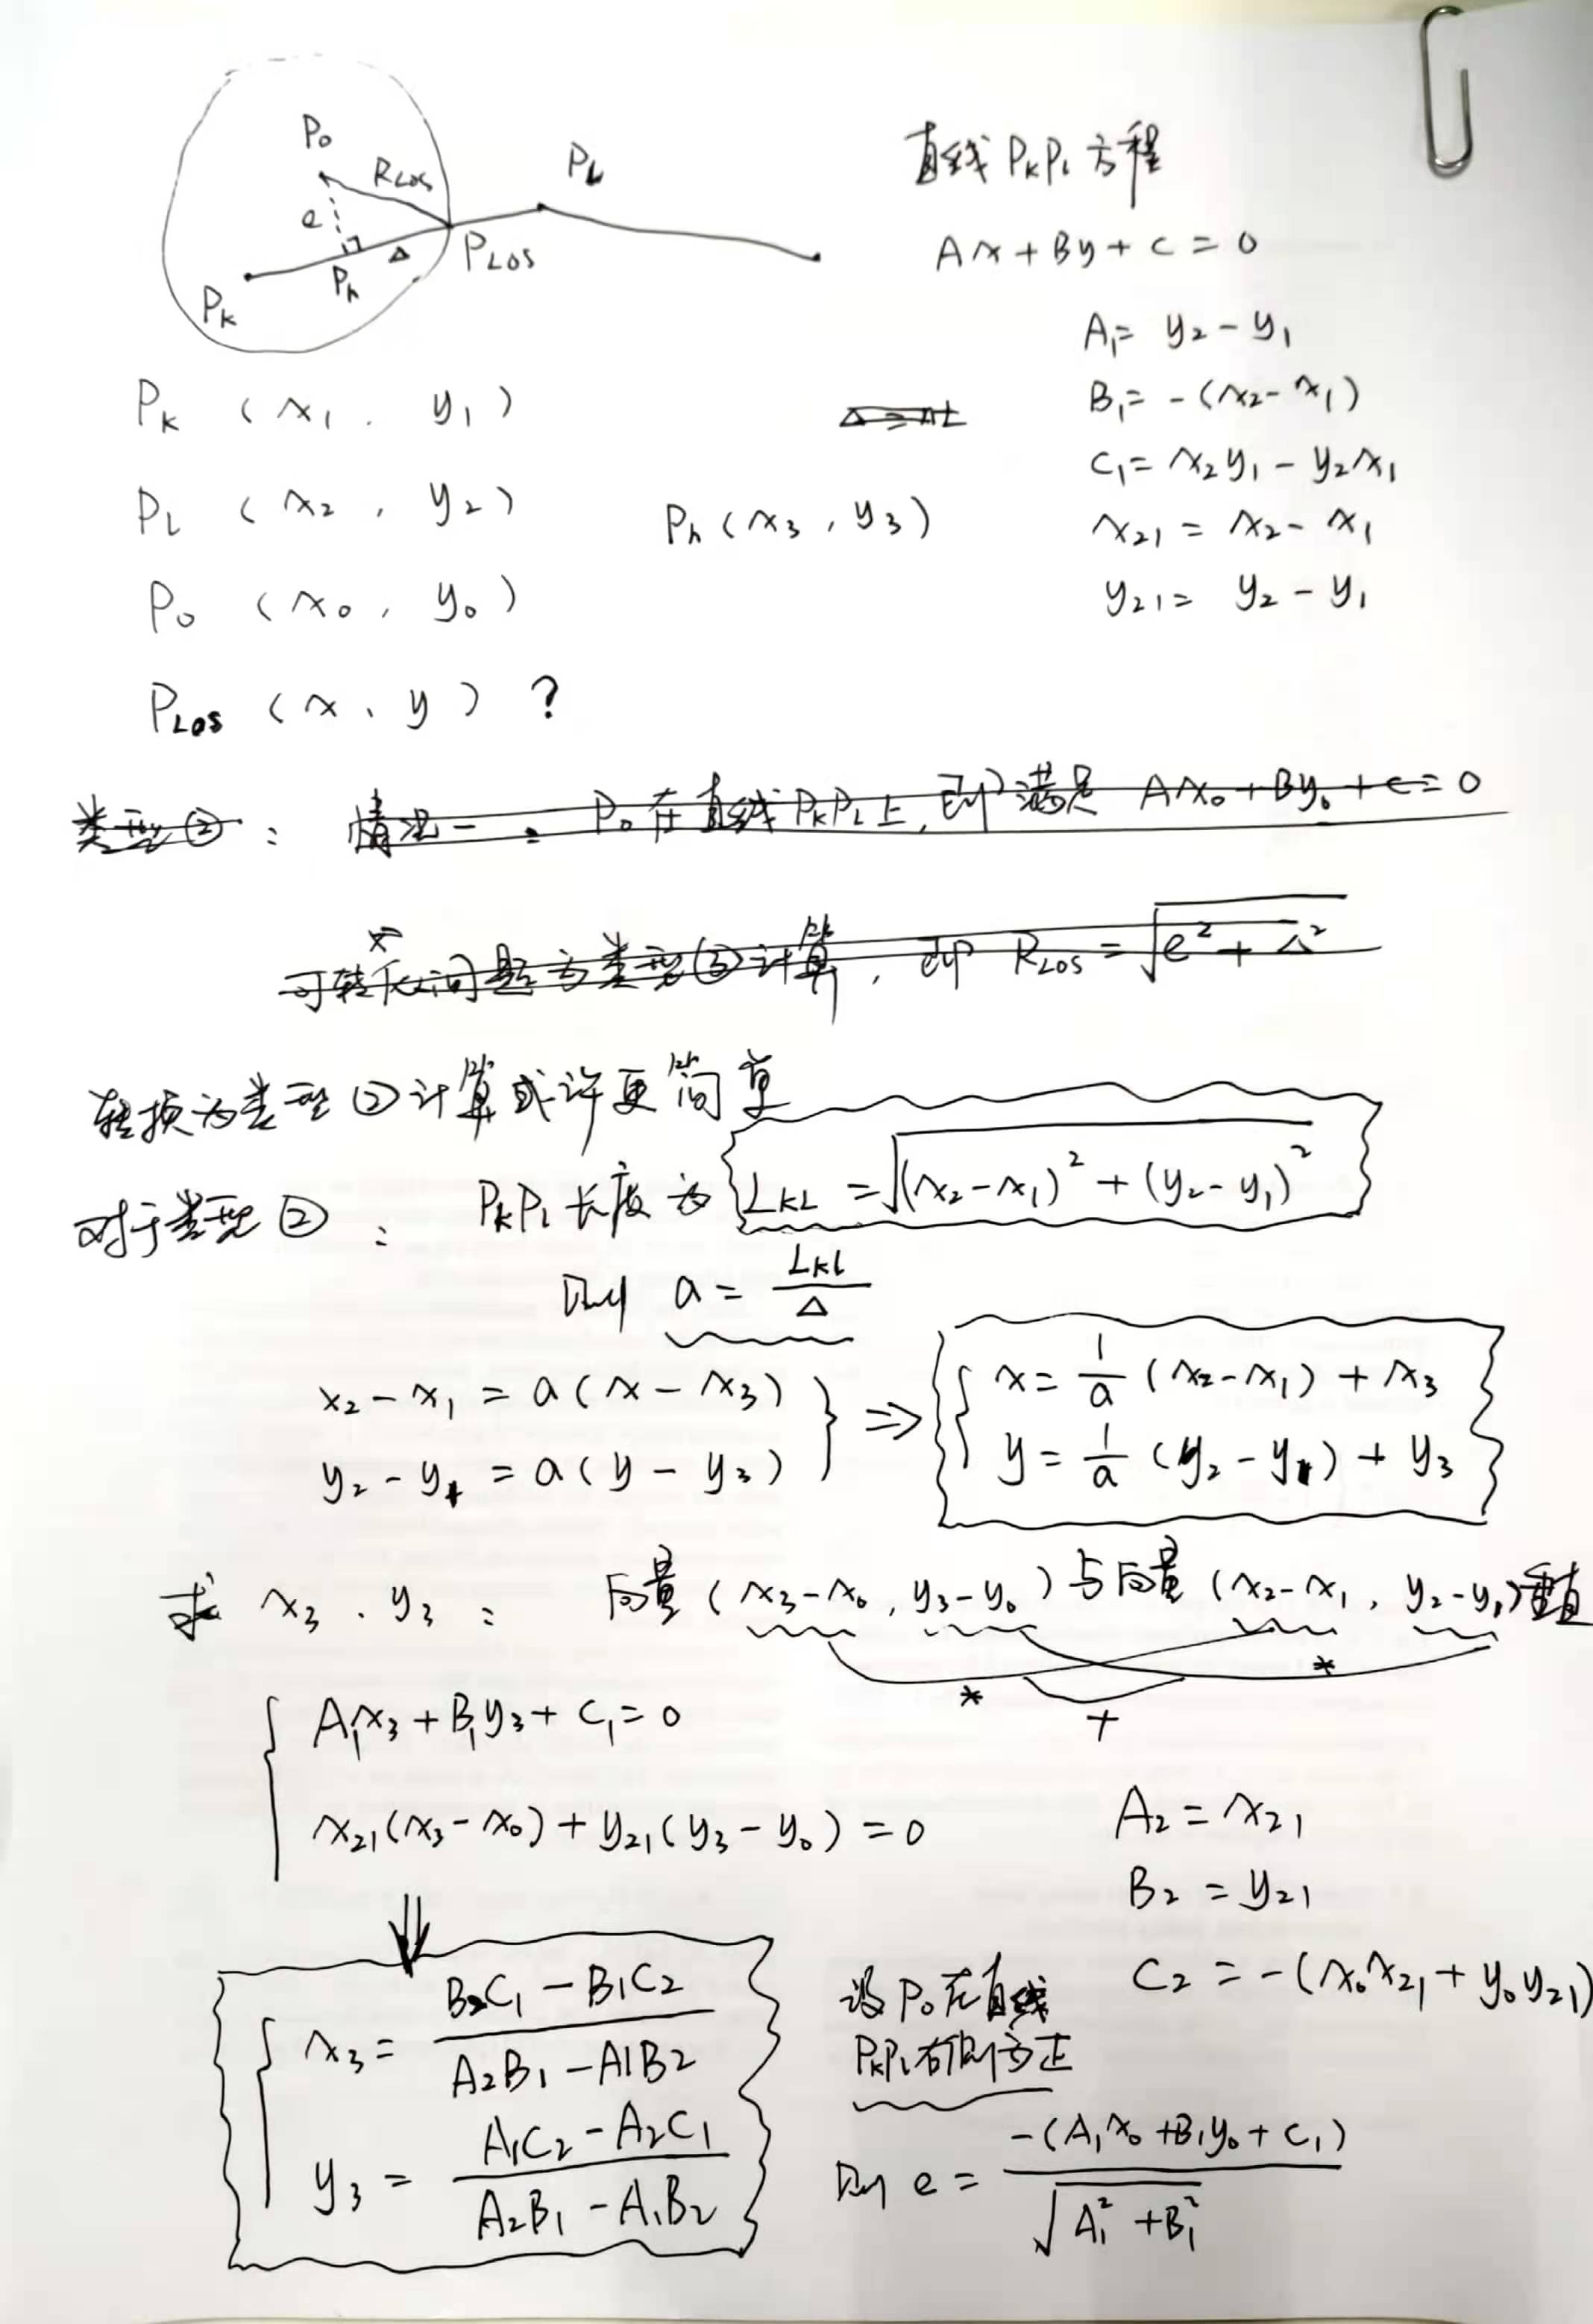 P₀
R_LOS
P_L
e
Δ
P_LOS
P_h
P_K
直线 P_K P_L 方程
Ax + By + C = 0
A₁ = y₂ - y₁
B₁ = -(x₂ - x₁)
C₁ = x₂y₁ - y₂x₁
x₂₁ = x₂ - x₁
y₂₁ = y₂ - y₁
P_K (x₁, y₁)
P_L (x₂, y₂)
P_h (x₃, y₃)
P₀ (x₀, y₀)
P_LOS (x, y) ?
类型②: 情况一: P₀在直线P_K P_L上, 即满足 Ax₀ + By₀ + C = 0
可转化问题为类型③计算, 即 R_LOS = √(e² + Δ²)
转换为类型②计算或许更简单
对于类型②: P_K P_L 长度为 L_KL = √((x₂ - x₁)² + (y₂ - y₁)²)
则 a = L_KL / Δ
x₂ - x₁ = a(x - x₃)
y₂ - y₁ = a(y - y₃)
⇒
x = 1/a (x₂ - x₁) + x₃
y = 1/a (y₂ - y₁) + y₃
求 x₃、y₃: 向量(x₃ - x₀, y₃ - y₀)与向量(x₂ - x₁, y₂ - y₁)垂直
* + *
A₁x₃ + B₁y₃ + C₁ = 0
x₂₁(x₃ - x₀) + y₂₁(y₃ - y₀) = 0
A₂ = x₂₁
B₂ = y₂₁
C₂ = -(x₀x₂₁ + y₀y₂₁)
⇓
x₃ = (B₂C₁ - B₁C₂) / (A₂B₁ - A₁B₂)
y₃ = (A₁C₂ - A₂C₁) / (A₂B₁ - A₁B₂)
设P₀在直线
P_K P_L右侧为正
则 e = -(A₁x₀ + B₁y₀ + C₁) / √(A₁² + B₁²)